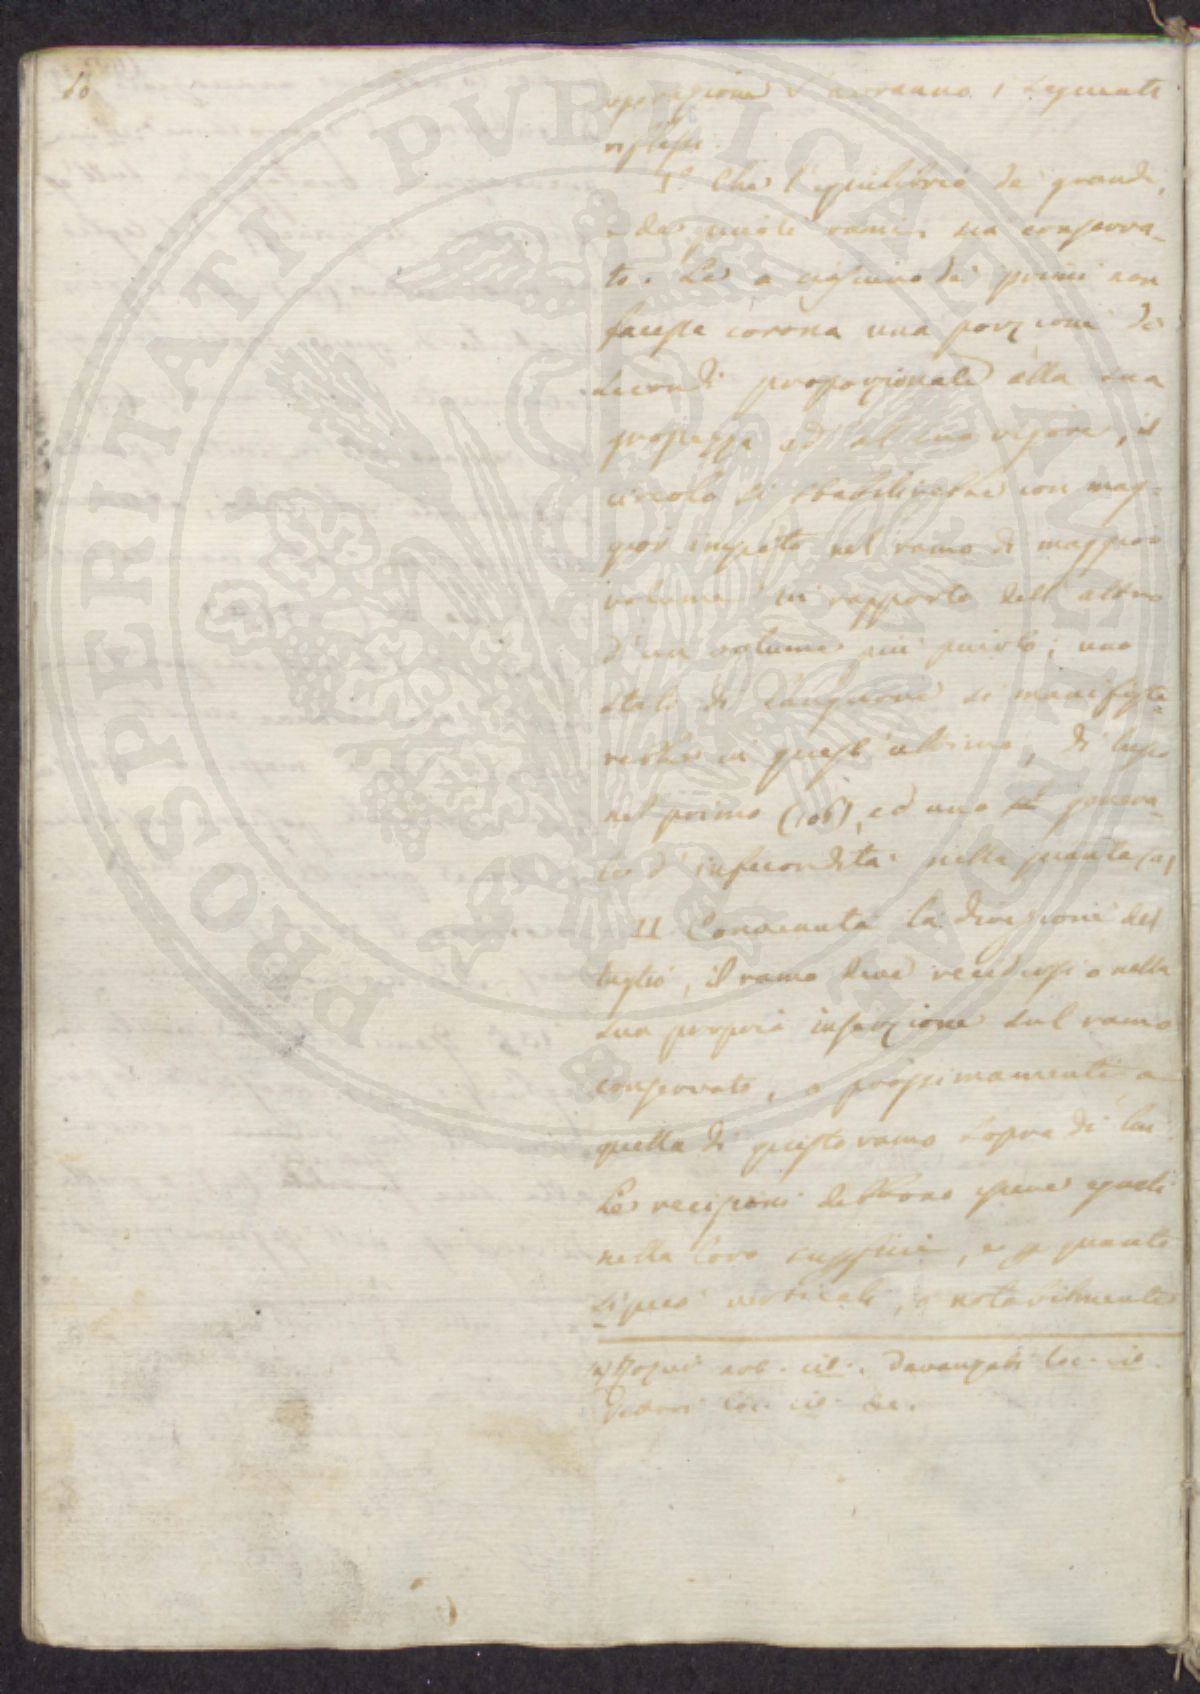 60
operazione s'avranno i seguenti
riflessi.
I.° Che l'equilibrio de' grandi,
e de' piccoli rami sia conserva-
to. Se a ciascuno de' primi non
facesse corona una porzione de'
secondi proporzionale alla sua
grossezza ed al suo vigore, il
circolo si stabilirebbe con mag-
gior impeto nel ramo di maggior
volume in rapporto dell'altro
d'un volume più piccolo; uno
stato di languore si manifeste-
rebbe in quest'ultimo, di lusso
nel primo (106), ed uno genera-
le d'infecondità nella pianta (a)
II Convenuta la direzione del
taglio, il ramo deve recidersi o nella
sua propria inserzione sul ramo
conservato, o prossimamente a
quella di questo ramo sopra di lui.
Le recisioni debbono essere eguali
nella loro superficie, e p quanto
si può verticali, o notabilmente
a) cit. Davanzati loc. cit.
Vettori loc. cit. &c.
PROSPERITATI PUBLICAE AUGENDAE